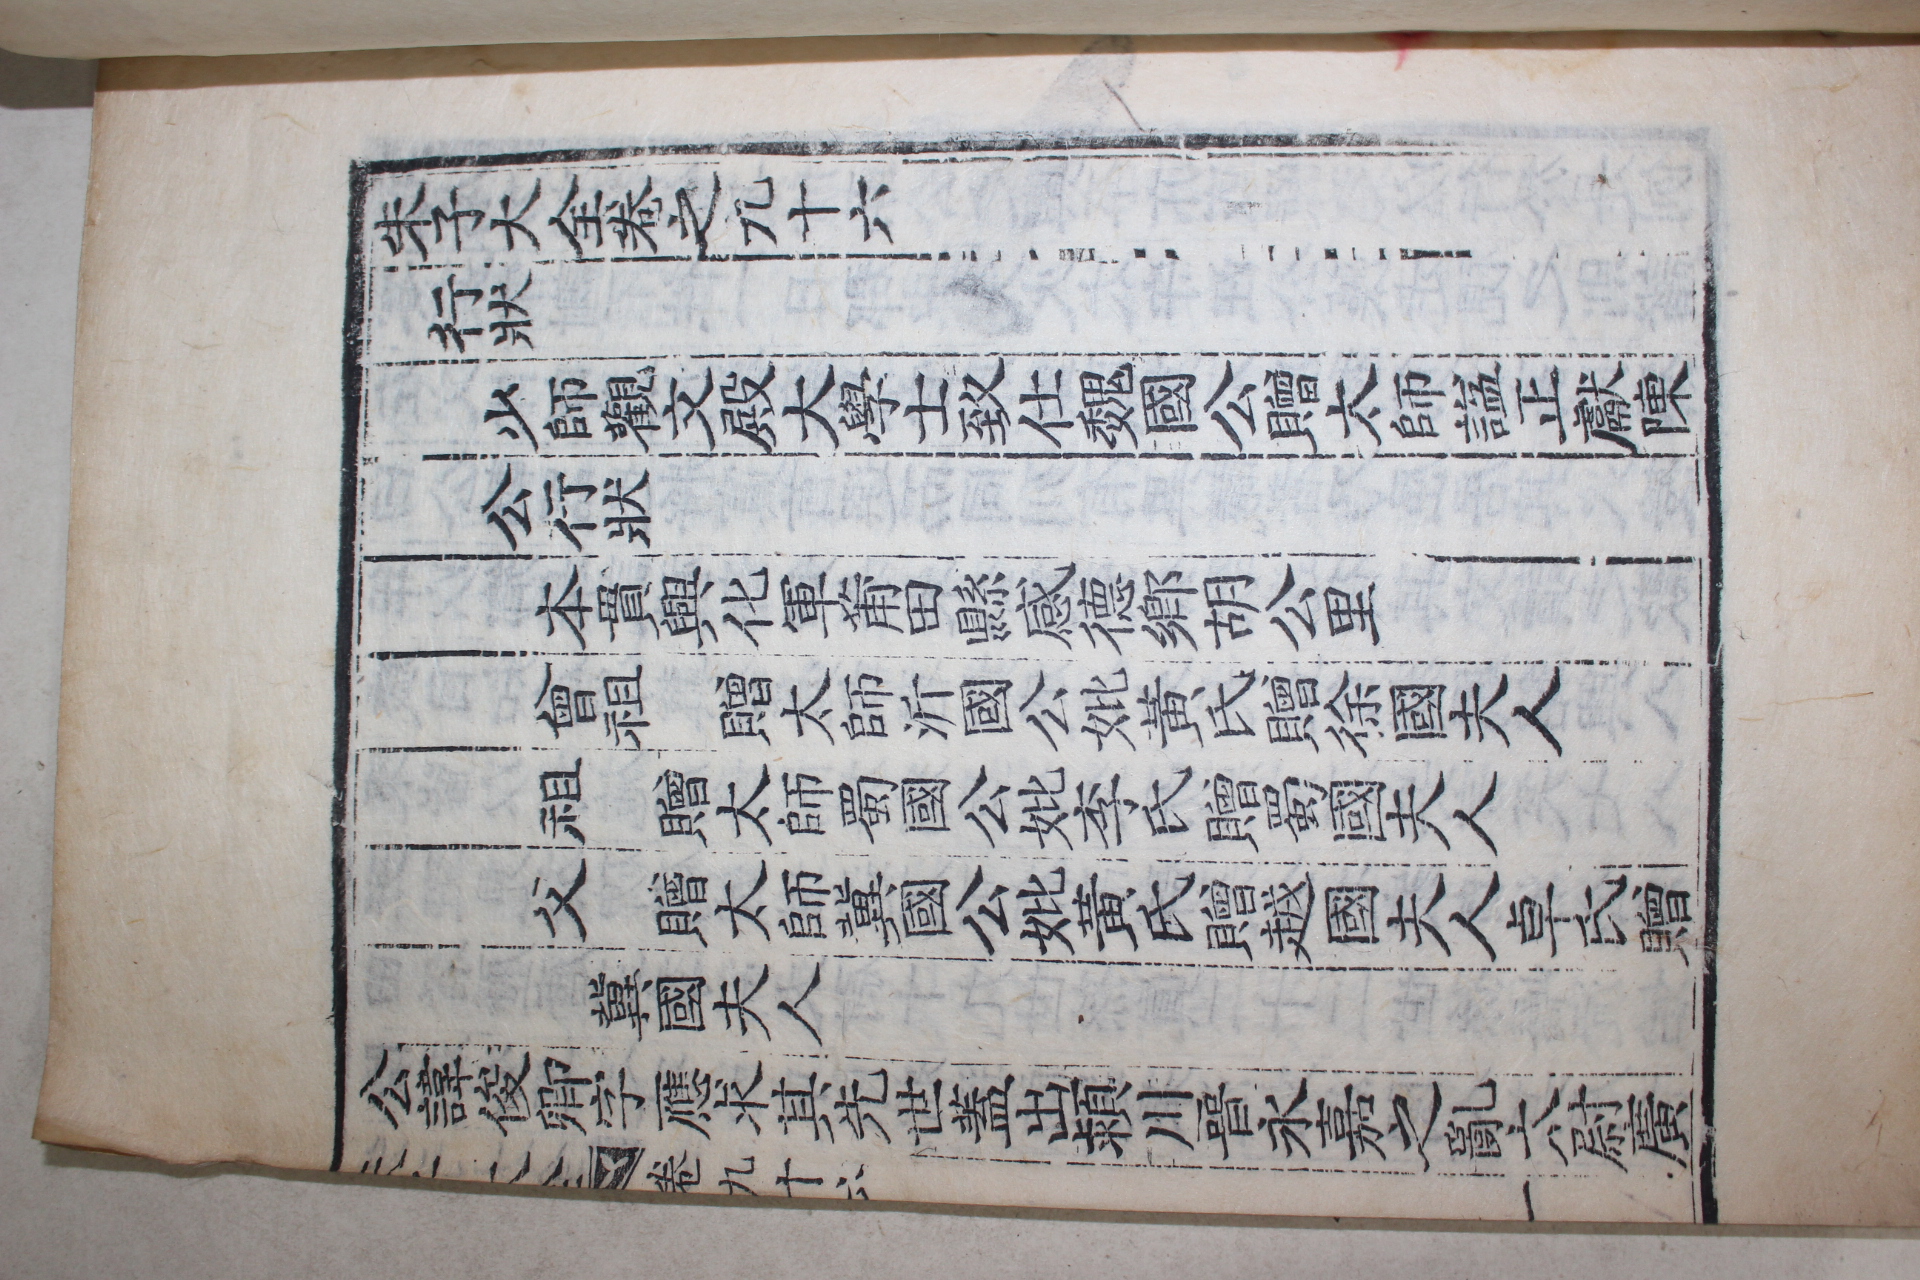 朱子大全卷之九十六
行狀
少師觀文殿大學士致仕魏國公贈太師諡正獻陳
公行狀
本貫興化軍莆田縣感德鄉胡公里
曾祖 贈太師沂國公妣黃氏贈徐國夫人
祖 贈太師蜀國公妣李氏贈蜀國夫人
父 贈太師冀國公妣黃氏贈越國夫人卓氏贈
冀國夫人
公諱俊卿字應求其先世蓋出潁川晉永嘉之亂太尉廣
卷九十六 一